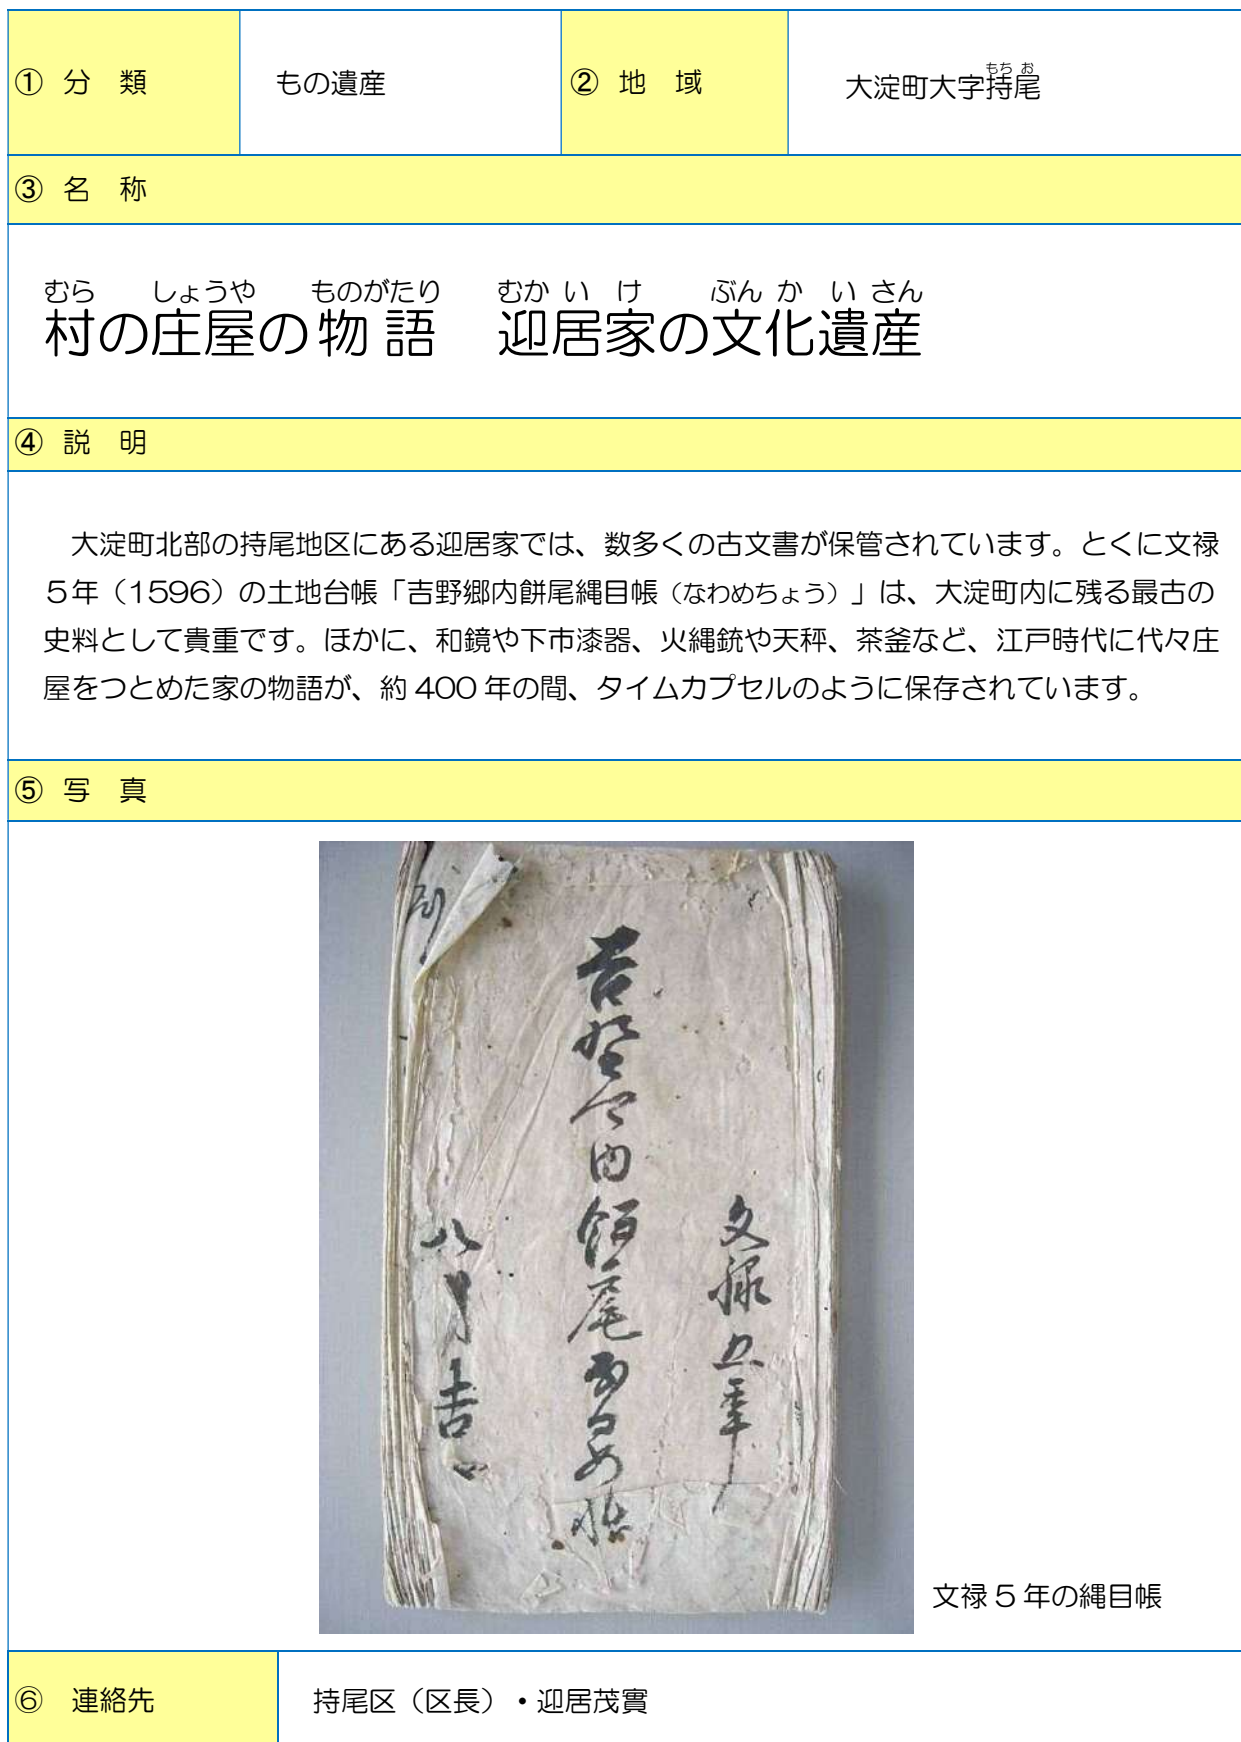 ① 分 類
もの遺産
② 地 域
もち お
大淀町大字持尾
③ 名 称
むら しょうや ものがたり むか い け ぶん か い さん
村の庄屋の物語 迎居家の文化遺産
④ 説 明
大淀町北部の持尾地区にある迎居家では、数多くの古文書が保管されています。とくに文禄
5年（1596）の土地台帳「吉野郷内餅尾縄目帳（なわめちょう）」は、大淀町内に残る最古の
史料として貴重です。ほかに、和鏡や下市漆器、火縄銃や天秤、茶釜など、江戸時代に代々庄
屋をつとめた家の物語が、約400年の間、タイムカプセルのように保存されています。
⑤ 写 真
文禄五年
吉野郷内餅尾縄目帳
八月吉
文禄5年の縄目帳
⑥ 連絡先
持尾区（区長）・迎居茂實